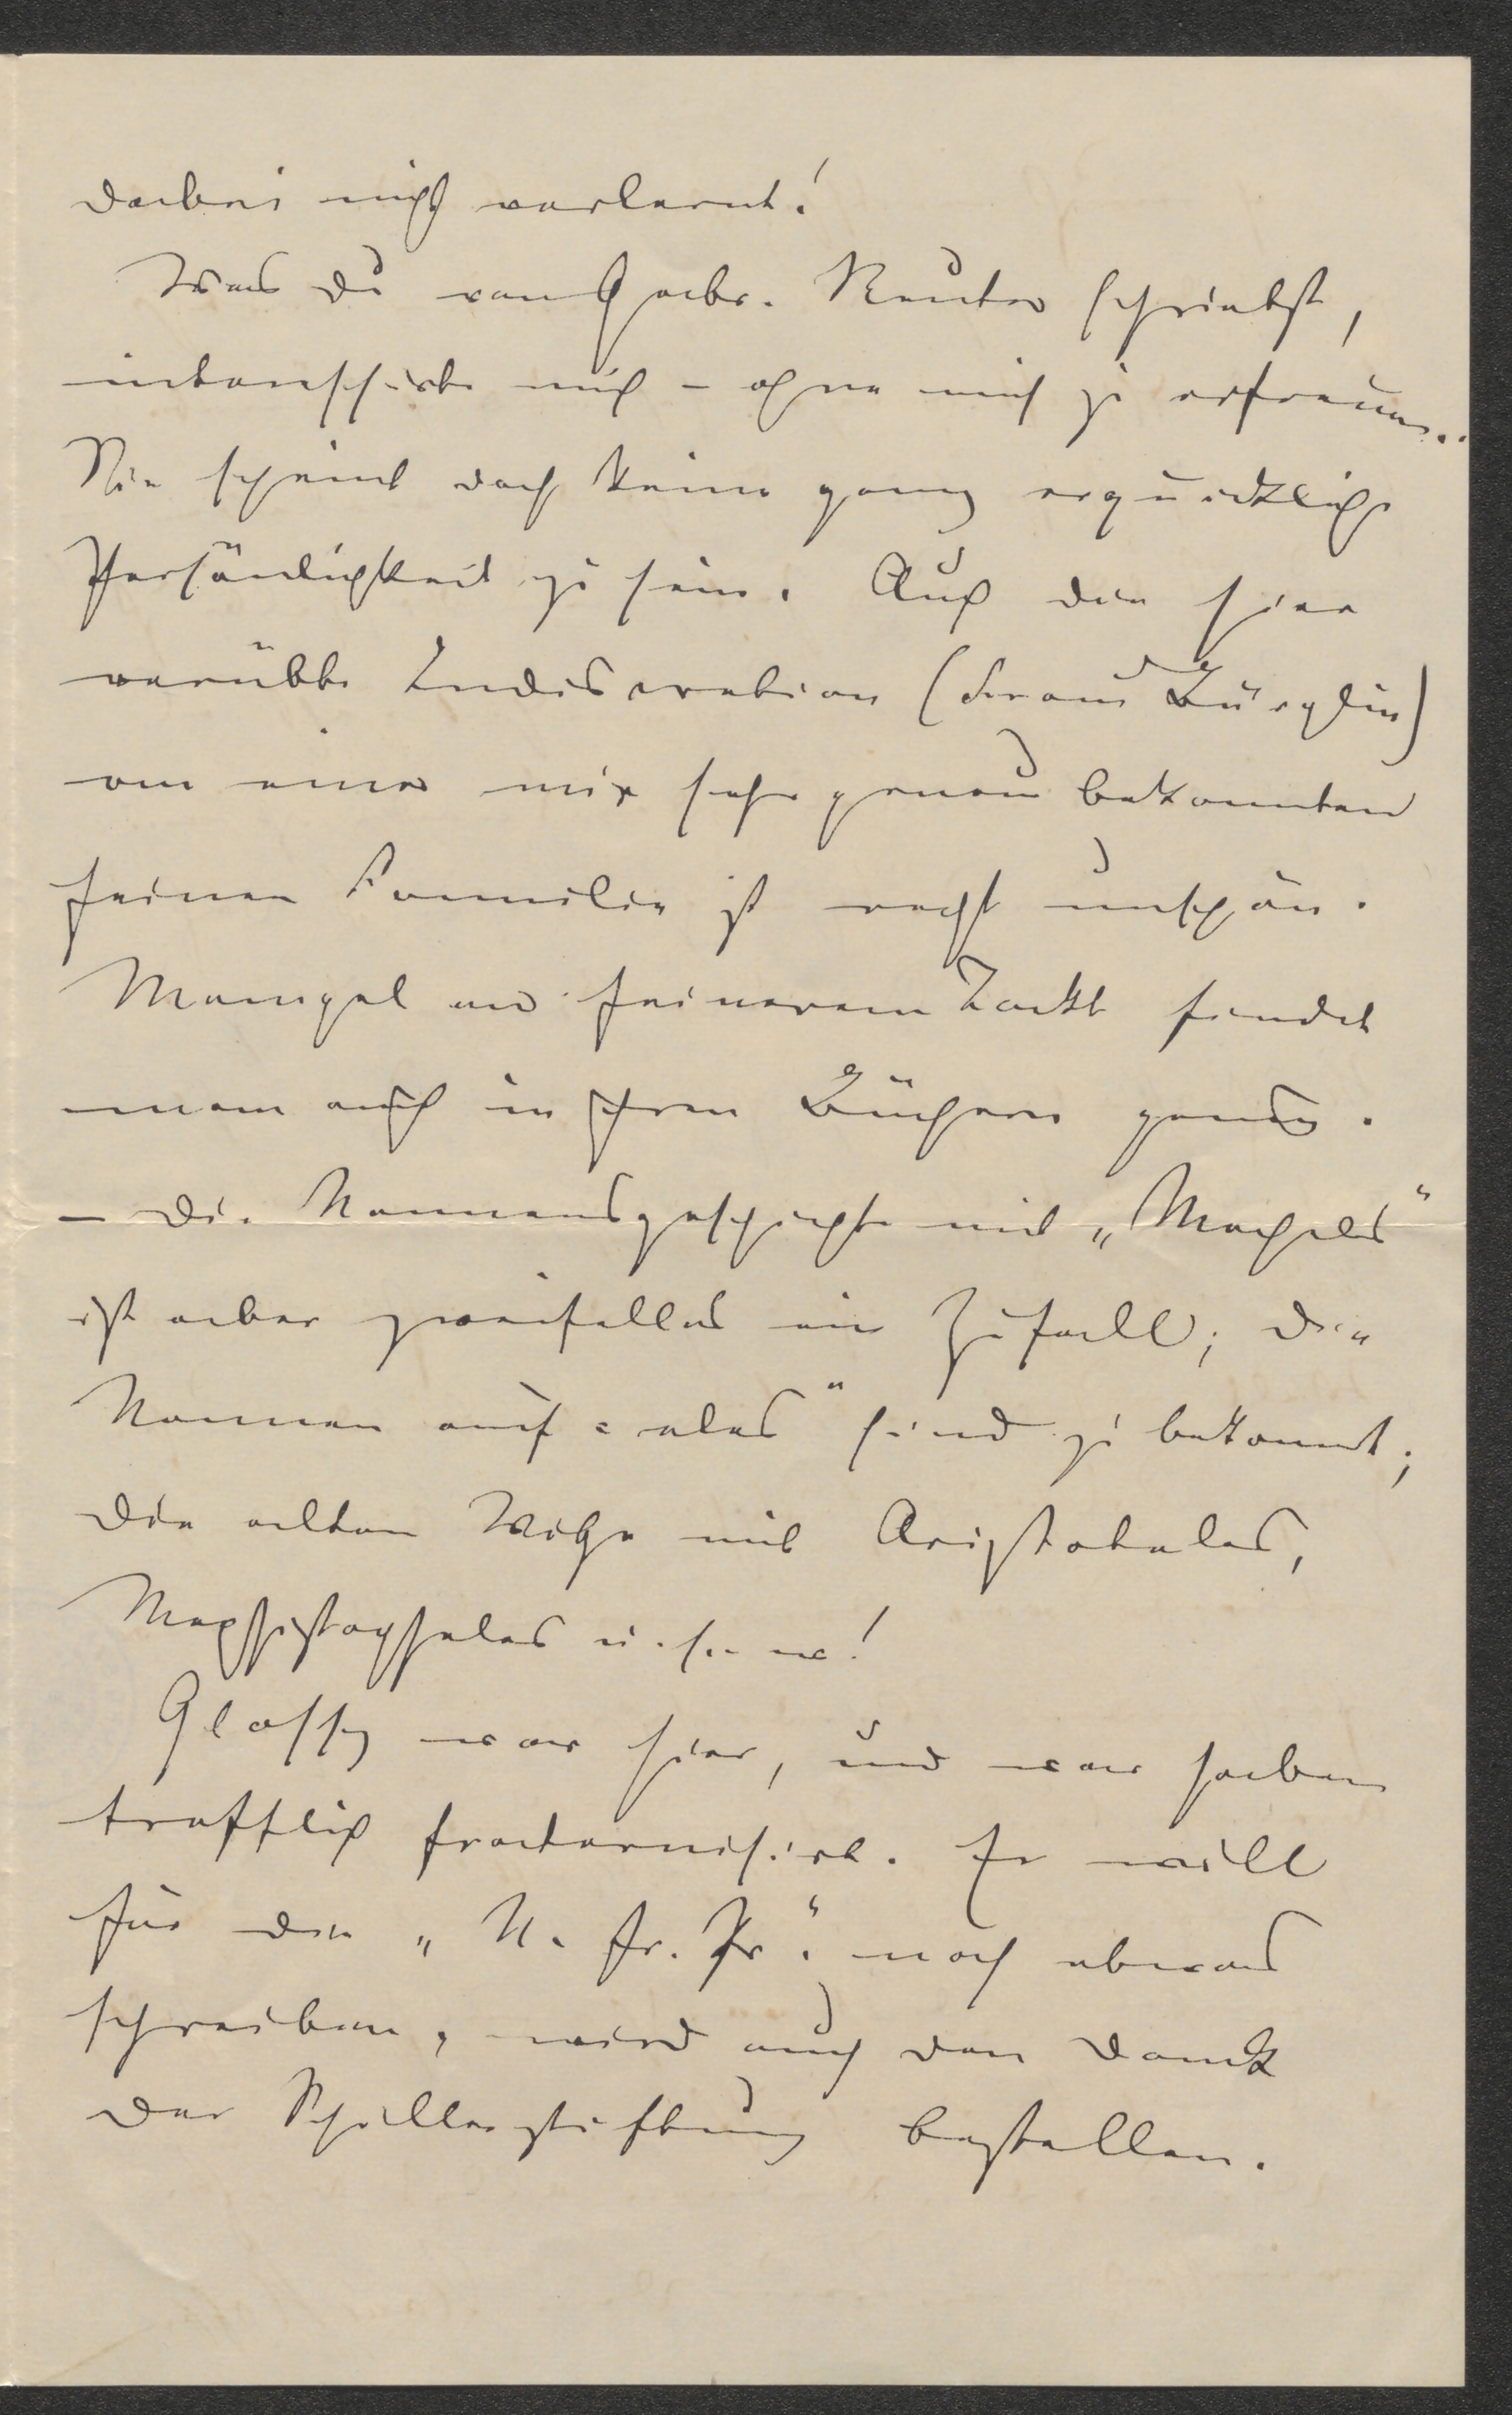 dabei nicht verlernt!
Was Du von Gabr. Reuter schriebst,
interessirte mich – ohne mich zu erfreuen..
Sie scheint doch keine ganz erquickliche
Persönlichkeit zu sein. Auch die hier
verübte Indiscretion (Frau Bürglin)
an einer mir sehr genau bekannten
feinen Familie ist recht unschön.
Mangel an feinerem Takt findet
man auch in ihren Büchern genug.
– Die Namensgeschichte mit „Macheles“
ist aber zweifellos ein Zufall; die
Namen auf =eles“ sind zu bekannt;
die alten Witze mit Aristoteles,
Mephistopheles u. s. w!
Glossy war hier, und wir haben
trefflich fraternisirt. Er will
für die „N. fr. Pr.“ noch etwas
schreiben, wird auch den Dank
der Schillerstiftung bestellen.